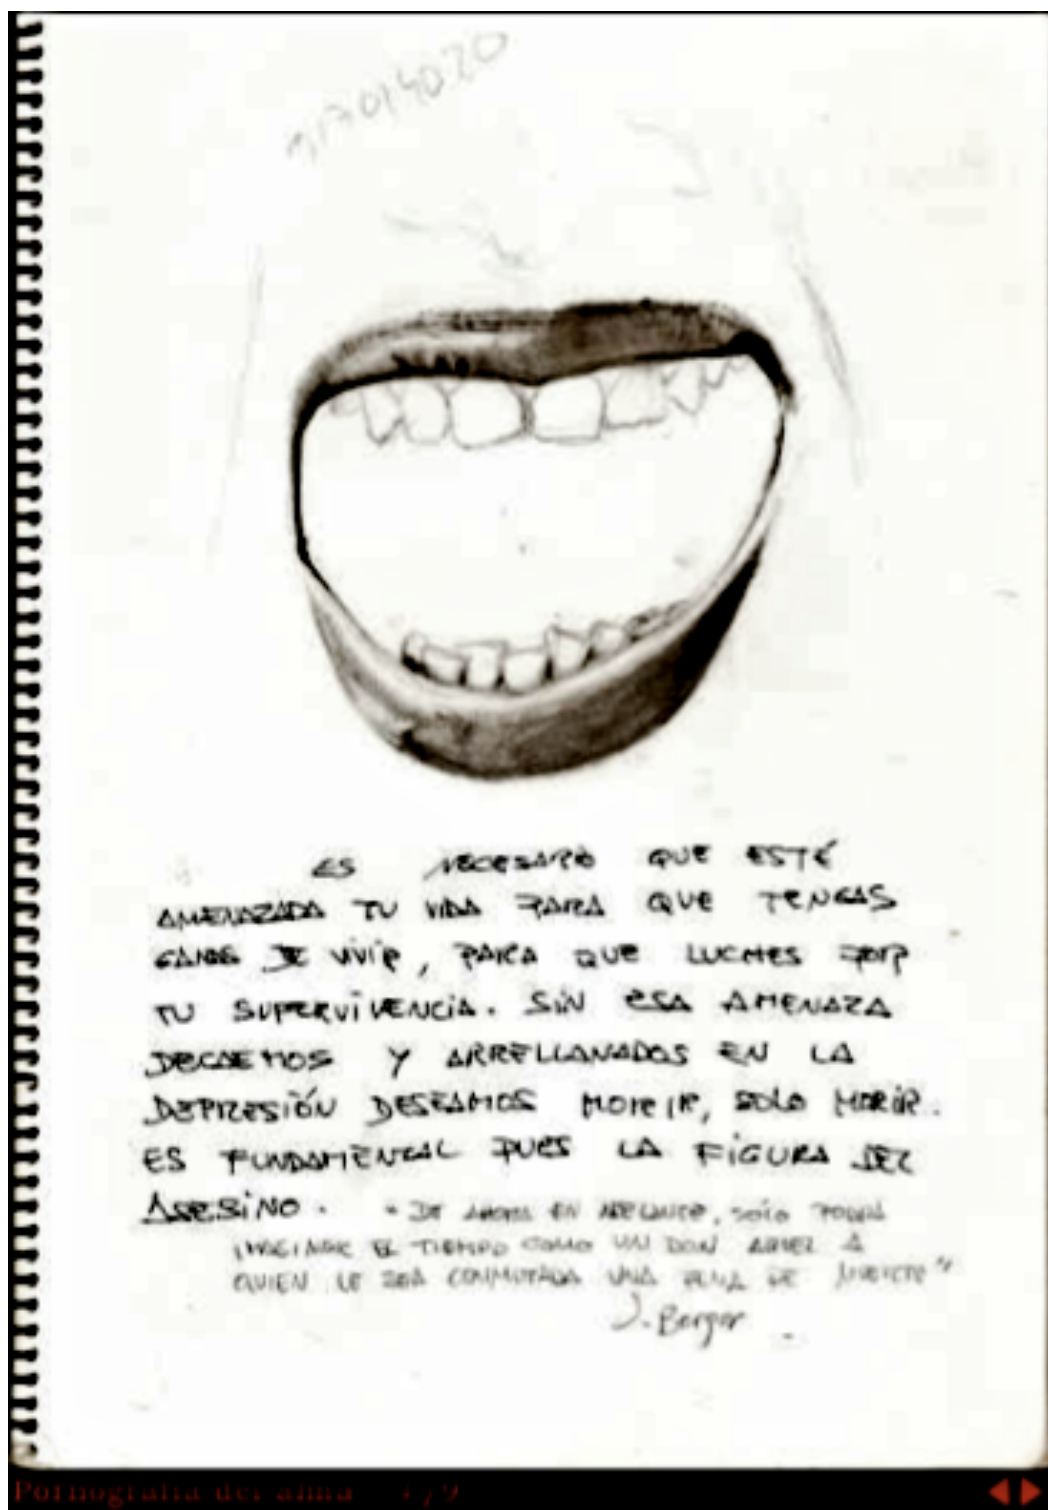 317014020
ES NECESARIO QUE ESTÉ
AMENAZADA TU VIDA PARA QUE TENGAS
GANAS DE VIVIR, PARA QUE LUCHES POR
TU SUPERVIVENCIA. SIN ESA AMENAZA
DECAEMOS Y ARRELLANADOS EN LA
DEPRESIÓN DESEAMOS MORIR, SOLO MORIR.
ES FUNDAMENTAL PUES LA FIGURA DEL
ASESINO. "DE AHORA EN ADELANTE, SÓLO PODRÁ
IMAGINAR EL TIEMPO COMO UN DON AQUEL A
QUIEN LE SEA CONMUTADA UNA PENA DE MUERTE"
J. Berger
Pornografia del alma /9